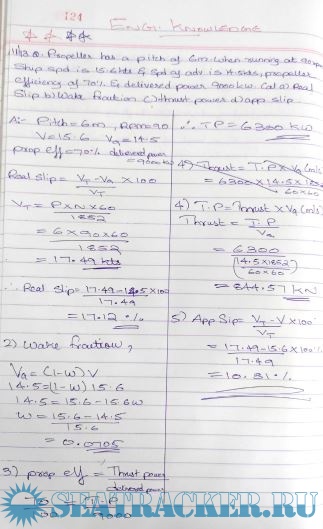 124
ENG. KNOWLEDGE
Q. Propeller has a pitch of 6m. when running at 90 rpm
Ship spd is 15.6kts & spd of adv is 14.5kts, propeller
efficiency of 70% & delivered power 9000kw. Cal a) Real
Slip b) Wake fraction c) thrust power d) app slip
A:- Pitch = 6m, RPM = 90
V = 15.6 Va = 14.5
prop eff = 70% delivered power = 9000 kw
Real Slip = VT - Va x 100
VT
VT = P x N x 60
1852
= 6 x 90 x 60
1852
= 17.49 kts
∴ Real slip = 17.49 - 14.5 x 100
17.49
= 17.12 %
2) Wake fraction,
Va = (1-W) V
14.5 = (1-W) 15.6
14.5 = 15.6 - 15.6W
W = 15.6 - 14.5
15.6
= 0.0705
3) prop eff = Thrust power
delivered power
T.P
9000
∴ T.P = 6300 kW
4) Thrust = T.P x Va (m/s)
= 6300 x 14.5 x 1852
60 x 60
4) T.P = Thrust x Va (m/s)
Thrust = T.P
Va
= 6300
(14.5 x 1852
60 x 60)
= 844.57 KN
5) App Slip = VT - V x 100
VT
= 17.49 - 15.6 x 100 %
17.49
= 10.81 %
SEATRACKER.RU